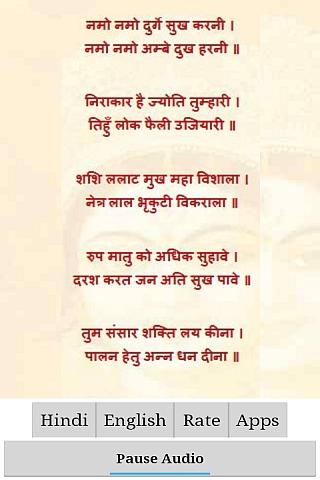 नमो नमो दुर्गे सुख करनी ।
नमो नमो अम्बे दुख हरनी ॥
निराकार है ज्योति तुम्हारी ।
तिहुँ लोक फैली उजियारी ॥
शशि ललाट मुख महा विशाला ।
नेत्र लाल भृकुटी विकराला ॥
रुप मातु को अधिक सुहावे ।
दरश करत जन अति सुख पावे ॥
तुम संसार शक्ति लय कीना ।
पालन हेतु अन्न धन दीना ॥
Hindi English Rate Apps
Pause Audio